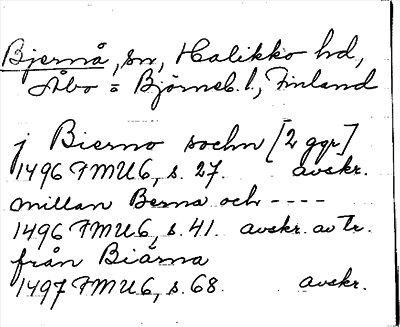 Bjernå, sn, Halikko hd,
Åbo = Björneb. l., Finland
j Bierno sochn [2 ggr]
1496 FMU6, s. 27. avskr.
millan Berna och ----
1496 FMU6, s. 41. avskr. av tr.
från Biärna
1497 FMU6, s. 68. avskr.